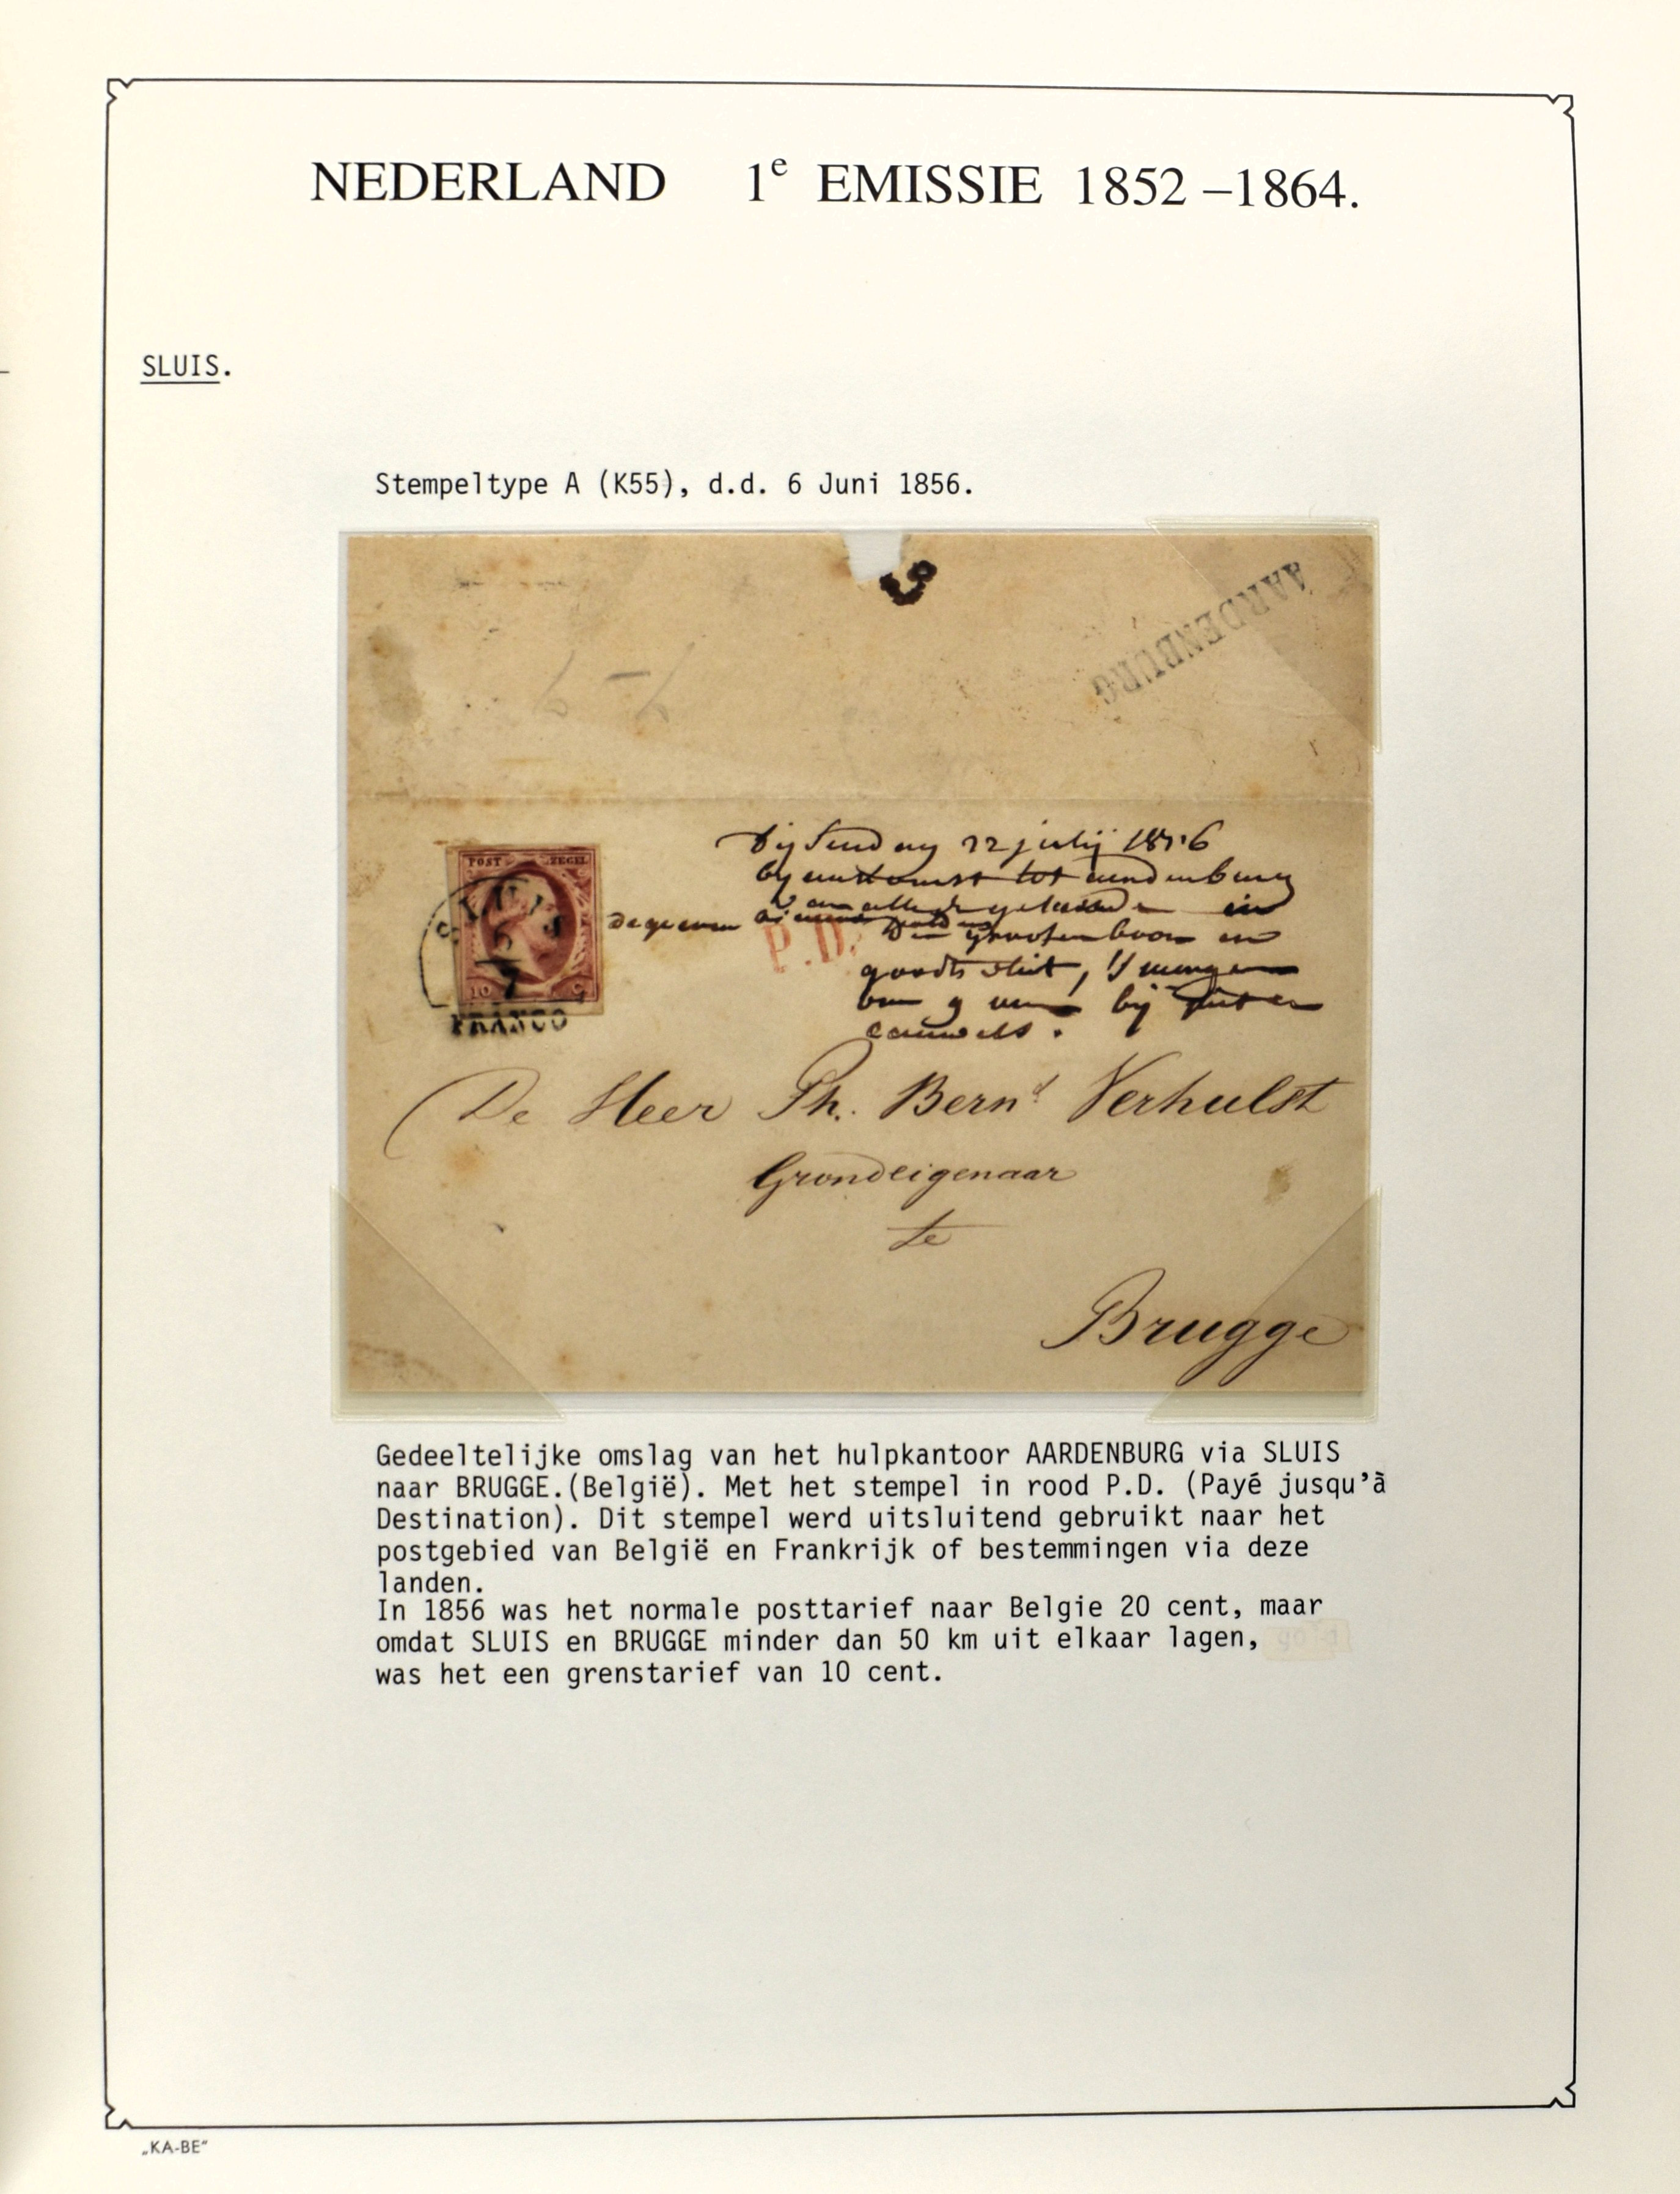 NEDERLAND 1e EMISSIE 1852 –1864.
SLUIS.
Stempeltype A (K55), d.d. 6 Juni 1856.
AARDENBURG
22 julij 1856
POST ZEGEL
SLUIS
10 C
FRANCO
P.D.
bij
De Heer Ph. Bernd Verhulst
Grondeigenaar
te
Brugge
Gedeeltelijke omslag van het hulpkantoor AARDENBURG via SLUIS
naar BRUGGE.(België). Met het stempel in rood P.D. (Payé jusqu'à
Destination). Dit stempel werd uitsluitend gebruikt naar het
postgebied van België en Frankrijk of bestemmingen via deze
landen.
In 1856 was het normale posttarief naar Belgie 20 cent, maar
omdat SLUIS en BRUGGE minder dan 50 km uit elkaar lagen,
was het een grenstarief van 10 cent.
„KA-BE"